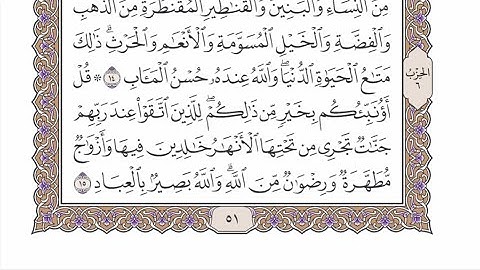 مِنَ ٱلنِّسَآءِ وَٱلۡبَنِينَ وَٱلۡقَنَٰطِيرِ ٱلۡمُقَنطَرَةِ مِنَ ٱلذَّهَبِ
وَٱلۡفِضَّةِ وَٱلۡخَيۡلِ ٱلۡمُسَوَّمَةِ وَٱلۡأَنۡعَٰمِ وَٱلۡحَرۡثِۗ ذَٰلِكَ
مَتَٰعُ ٱلۡحَيَوٰةِ ٱلدُّنۡيَاۖ وَٱللَّهُ عِندَهُۥ حُسۡنُ ٱلۡمَـَٔابِ ١٤ ۞ قُلۡ
أَؤُنَبِّئُكُم بِخَيۡرٖ مِّن ذَٰلِكُمۡۖ لِلَّذِينَ ٱتَّقَوۡاْ عِندَ رَبِّهِمۡ
جَنَّٰتٞ تَجۡرِي مِن تَحۡتِهَا ٱلۡأَنۡهَٰرُ خَٰلِدِينَ فِيهَا وَأَزۡوَٰجٞ
مُّطَهَّرَةٞ وَرِضۡوَٰنٞ مِّنَ ٱللَّهِۗ وَٱللَّهُ بَصِيرُۢ بِٱلۡعِبَادِ ١٥
الحِزْبُ
٦
٥١